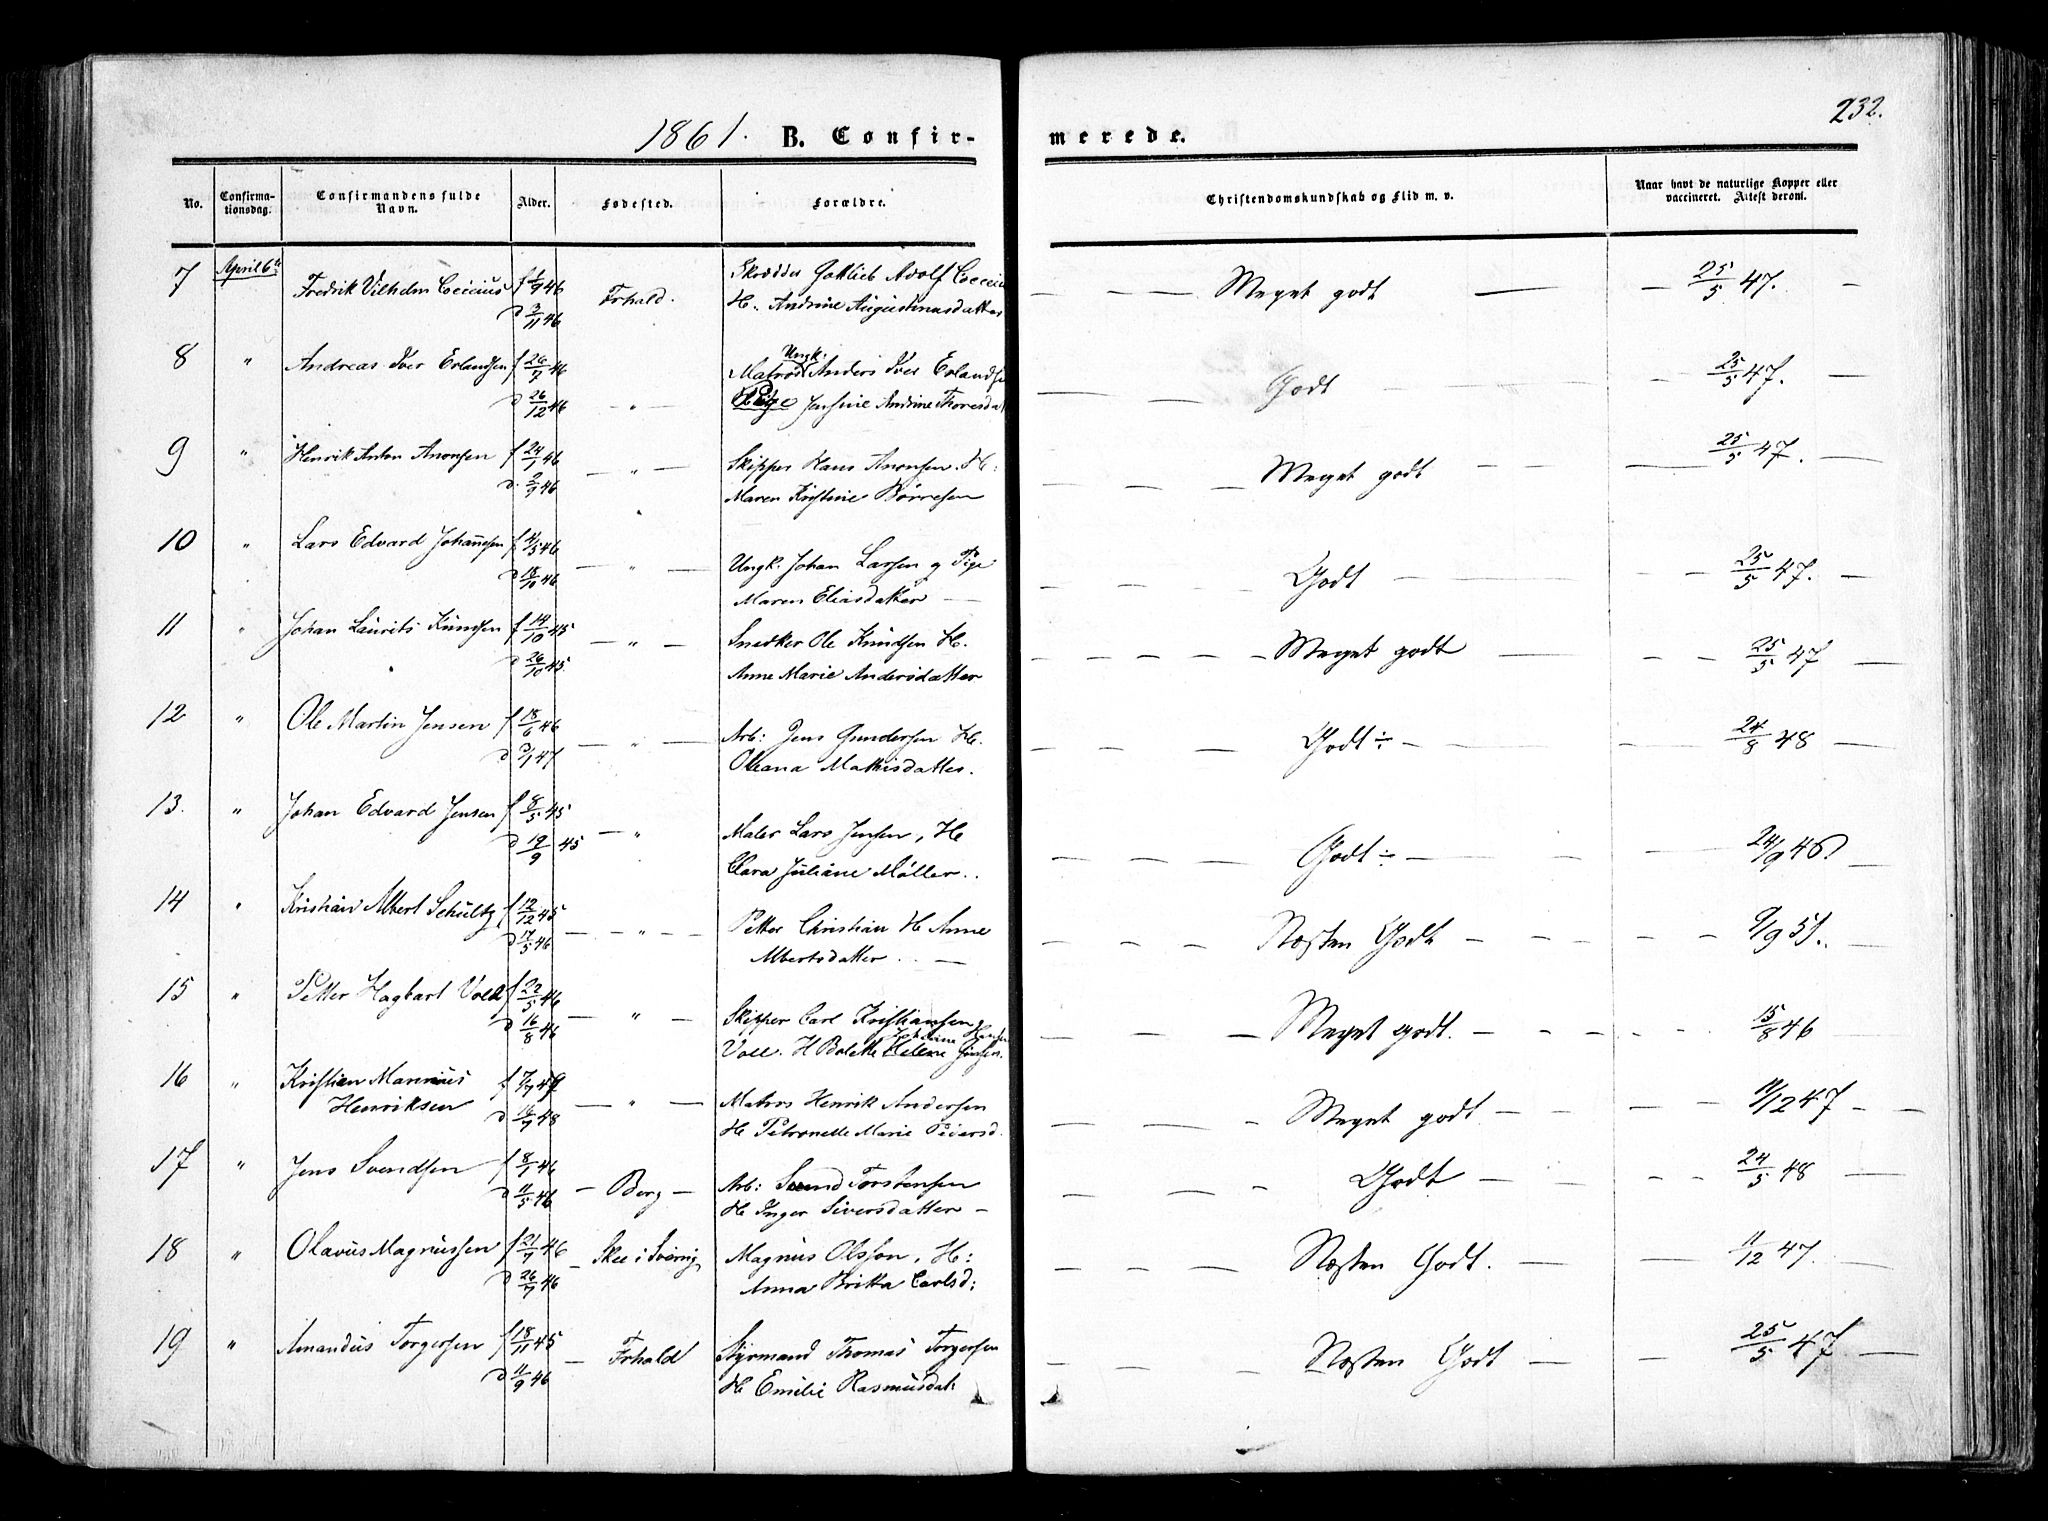 232.
1861. B. Confirmerede.
No. Confirmationsdag. Confirmandens fulde Navn. Alder. Fødested. Forældre. Christendomskundskab og Flid m. v. Naar havt de naturlige Kopper eller vaccineret. Attest derom.
7 April 6te Fredrik Vilhelm Ceicius f 1/9 46 Frhald. Skrædder Gottlieb Adolf — — — Meget godt — — 25/5 47. —
d 2/11 46 H. Andrine Augustinusdatter
8 " Andreas Iver Erlandsen f 26/9 46 Ungk. Matros Anders Iver Erlandsen — — — Godt — — 25/5 47. —
d 26/12 46 — " — Pige Jensine Andrine Thoresdat
9 " Henrik Anton Aronsen f 24/1 46 — " — Skipper Hans Aronsen. H: — — — Meget godt — — — 25/5 47. —
d. 2/9 46 Maren Kristine Børresen
10 " Lars Edvard Johannsen f 4/5 46
d 18/10 46 — " — Ungk. Johan Larsen og Pige — — — Godt — — — 25/5 47. —
Maren Eliasdatter —
11 " Johan Laurits Knudsen f 14/10 45 — " — Snedker Ole Knudsen H. — — — — — Meget godt — — — 25/5 47 —
d 26/10 45. Anne Marie Andersdatter
12 " Ole Martin Jensen f 18/6 46
d 3/1 47 — " — Arb: Jens Gundersen H. — — — Godt ÷ — — — 24/8 48 —
Oleana Mathisdatter.
13. " Johan Edvard Jensen f 8/5 45
d 19/9 45 — " Maler Lars Jensen, H — — — — Godt ÷ — — — 24/9 46. —
Clara Juliane Møller..
14 " Kristian Albert Schultz f 12/12 45
d 17/5 46 — — " — Petter Christian H Anne — — — Næsten Godt — — — 9/9 51. —
Albertsdatter . . —
15 " Petter Hagbart Voll f 22/5 46
d 16/8 46 — " — Skipper Carl Kristiansen — — — Meget godt. — — — — 15/8 46
Voll. H Bolette Helene
16 " Kristian Marinius f 7/9 47
Henriksen d 16/9 48 — " — Matros Henrik Andersen — — — — Meget godt — — — 11/12 47 — —
H Petronelle Marie Peders d.
17 " Jens Svendsen f 8/1 46
d 11/5 46 — Berg — Arb: Svend Torstensen — — — Godt — — — — 24/5 48 —
H Inger Siversdatter —
18 " Olavus Magnussen f 21/7 46 — Skee i Sverrig Magnus Olsson, H: — — — Næsten Godt. — — — 11/12 47. —
d 26/7 46 Anna Britta Carlsd:
19 " Amandus Torgersen f 18/11 45 — Frhald Styrmand Thomas Torgersen — — — Næsten Godt — — 25/5 47 —
d 11/9 46 H Emilie Rasmusdat